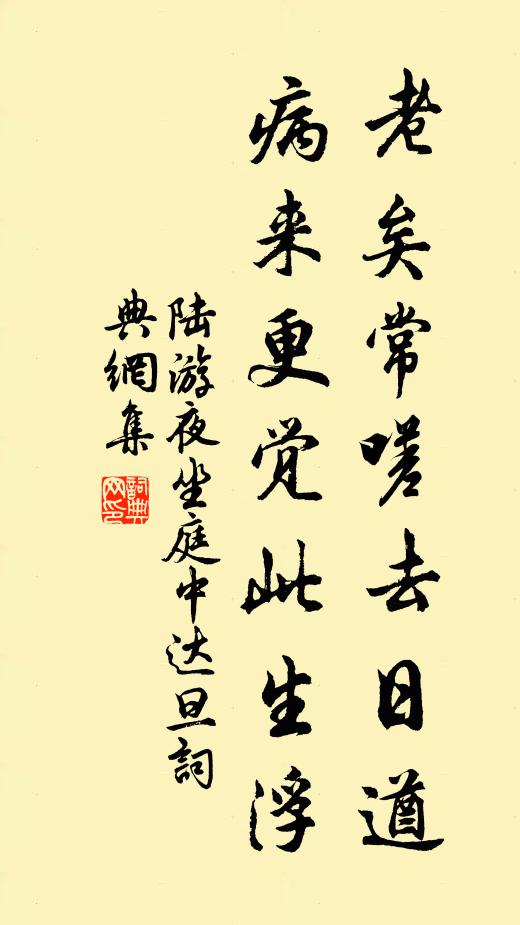 老矣常嗟去日遒
病来更觉此生浮
陆游夜坐庭中达旦詞
典網集
詞典网印